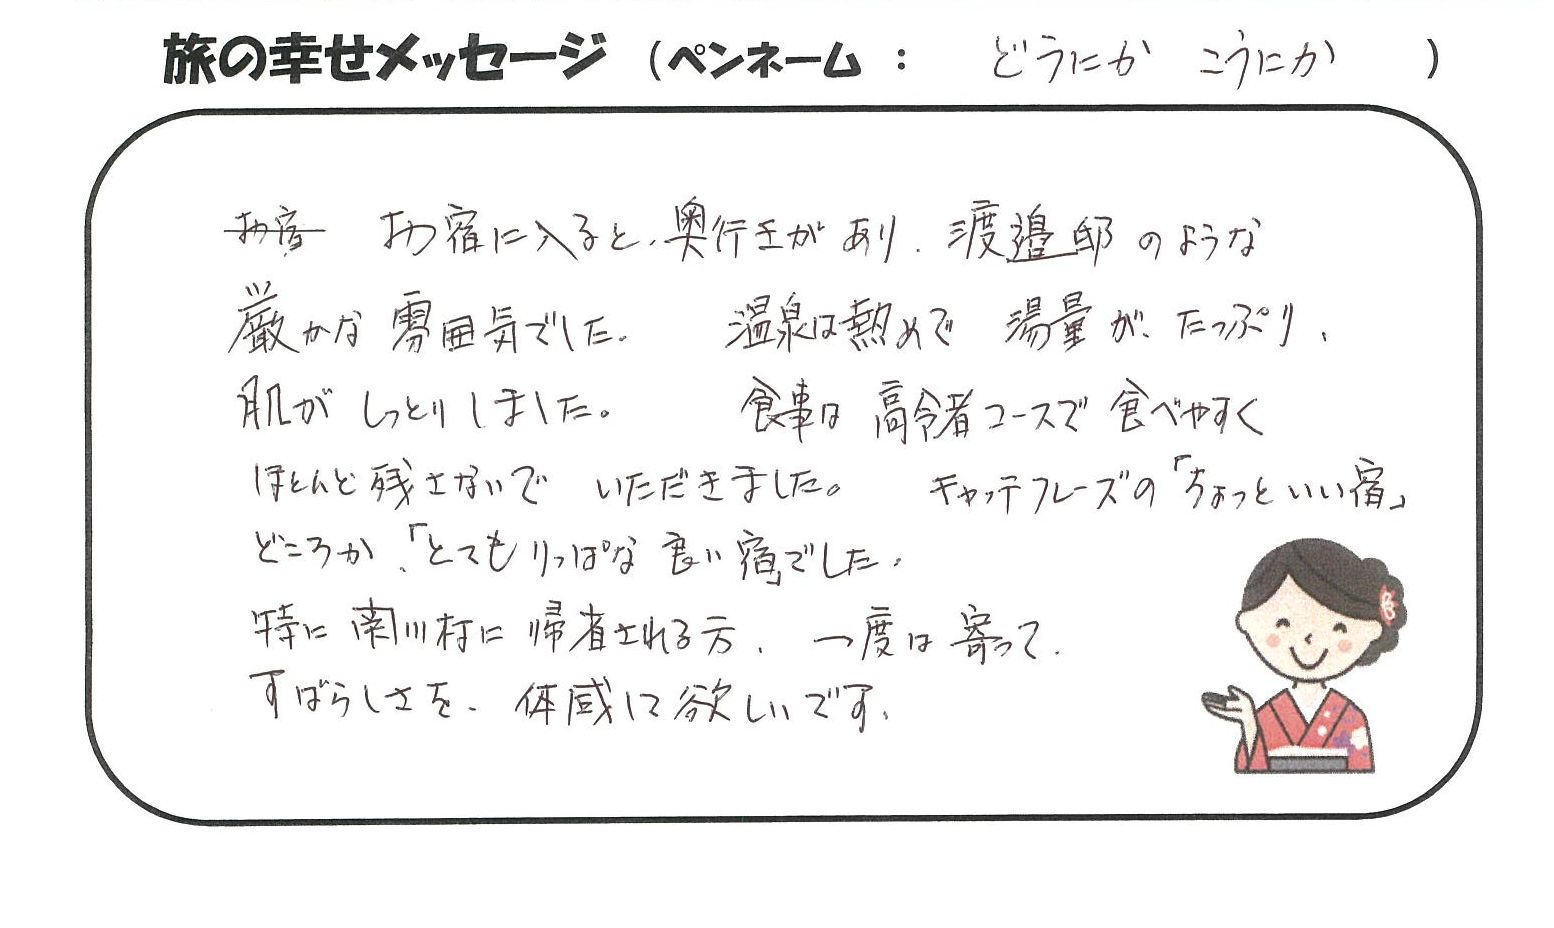 旅の幸せメッセージ（ペンネーム： どうにか こうにか ）
お宿 お宿に入ると、奥行きがあり、渡邉邸のような
厳かな雰囲気でした。 温泉は熱めで 湯量が、たっぷり、
肌がしっとりしました。 食事は高令者コースで食べやすく
ほとんど残さないで いただきました。 キャッチフレーズの「ちょっといい宿」
どころか、「とてもりっぱな良い宿」でした。
特に関川村に帰省される方、一度は寄って、
すばらしさを、体感して欲しいです。